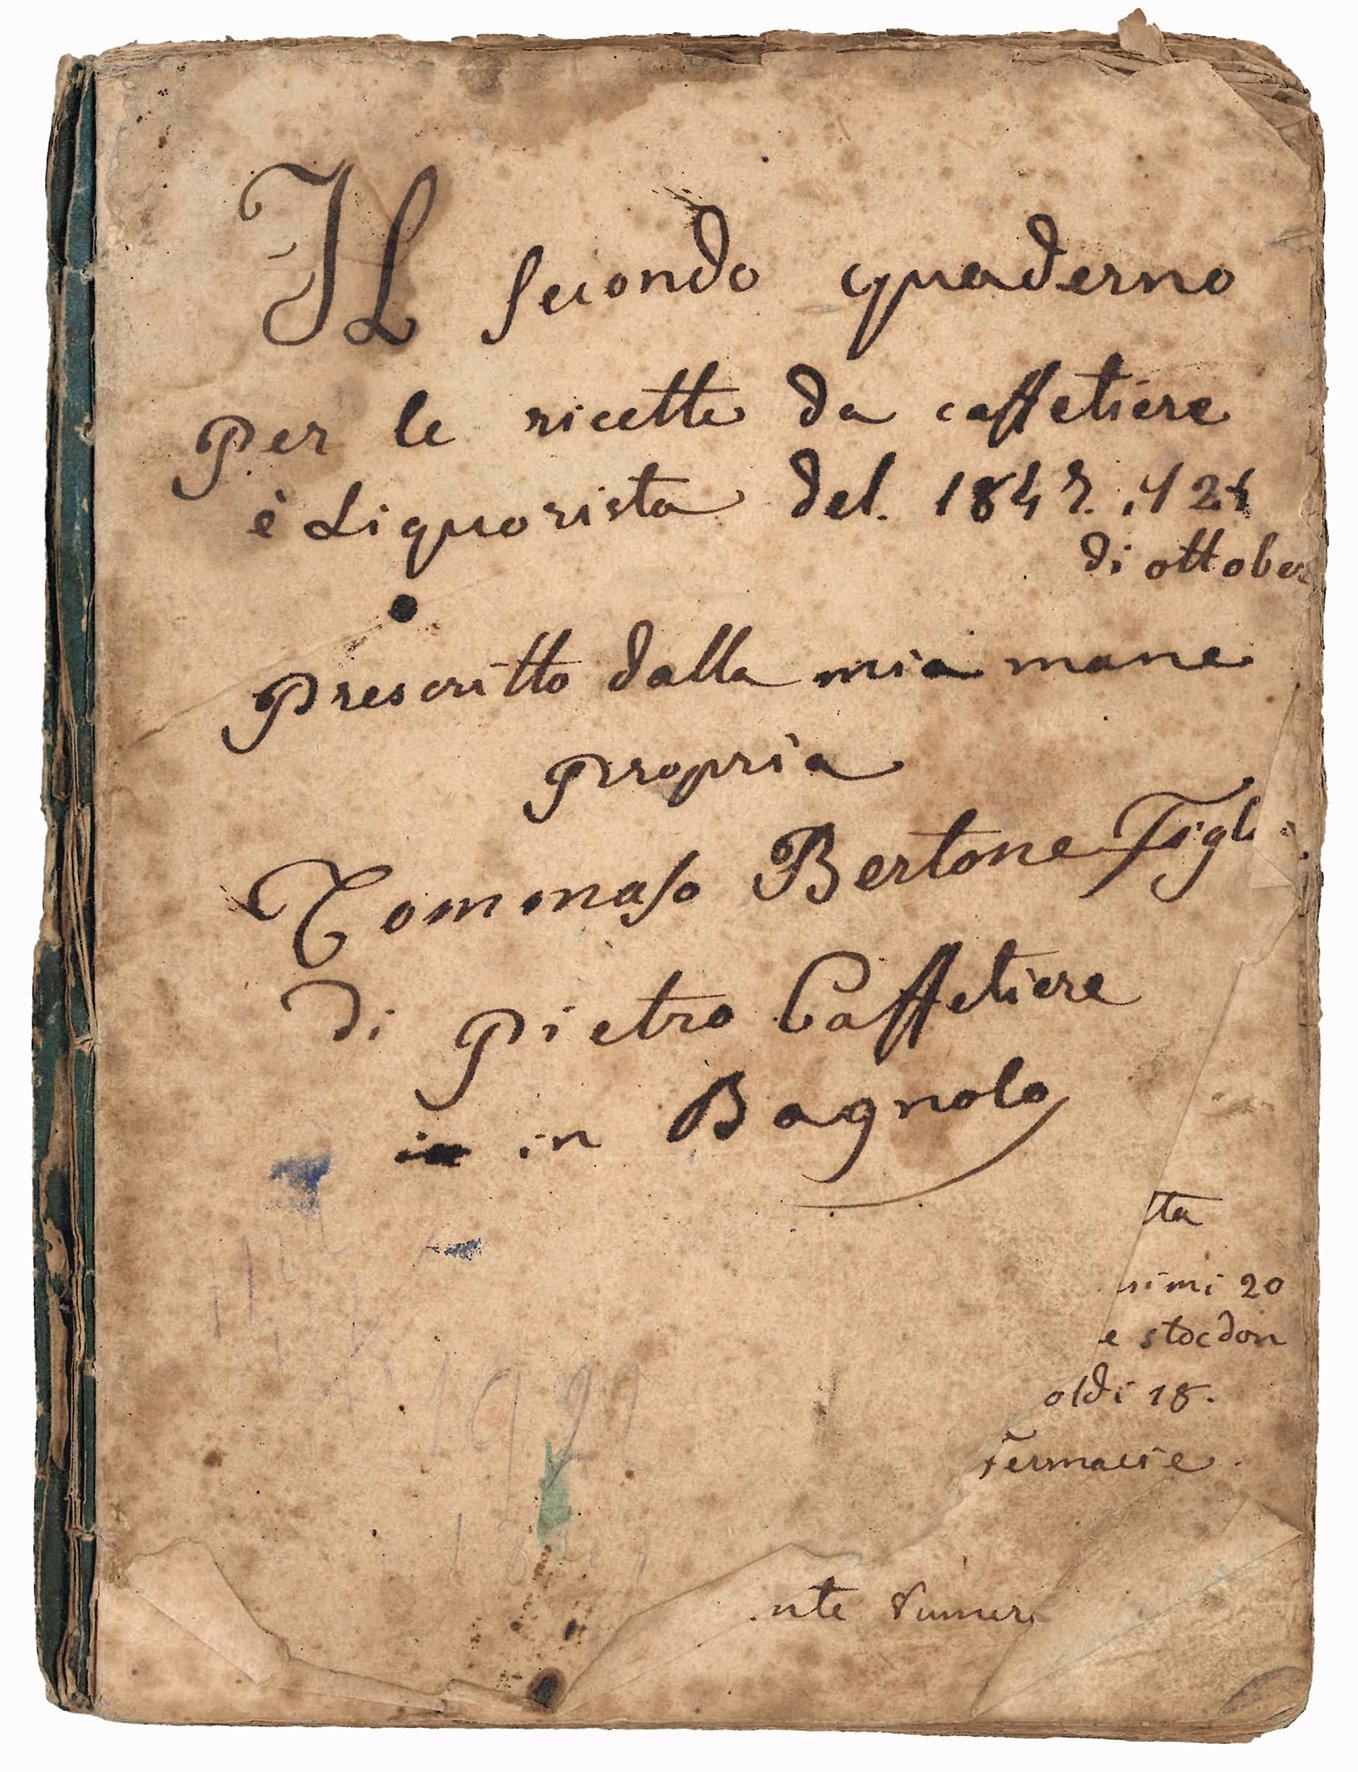 Il secondo quaderno
Per le ricette da caffetiere
è Liquorista del. 1847. il 21
di ottober
Prescritto dalla mia mane
propria
Tommaso Bertone Figli
di Pietro Caffetiere
in in Bagnolo
tta
simi 20
e stocdon
oldi 18.
Fermacie.
nte